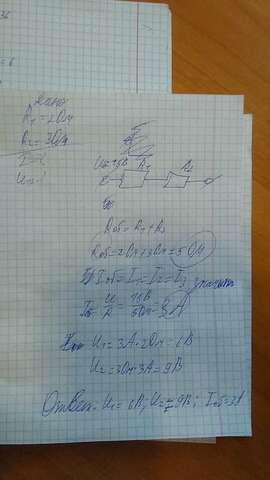 36
= 6
Дано
R₁ = 2 Ом
R₂ = 3 Ом
I = ?
U = 15В R₁ R₂
Rоб = R₁ + R₂
Rоб = 2 Ом + 3 Ом = 5 Ом
Iоб = I₁ = I₂ = I₃ значит
I = U/R = 15В/5Ом = 3 А
U₁ = 3А · 2Ом = 6 В
U₂ = 3Ом · 3А = 9 В
Ответ: U₁ = 6В; U₂ = 9В; Iоб = 3А